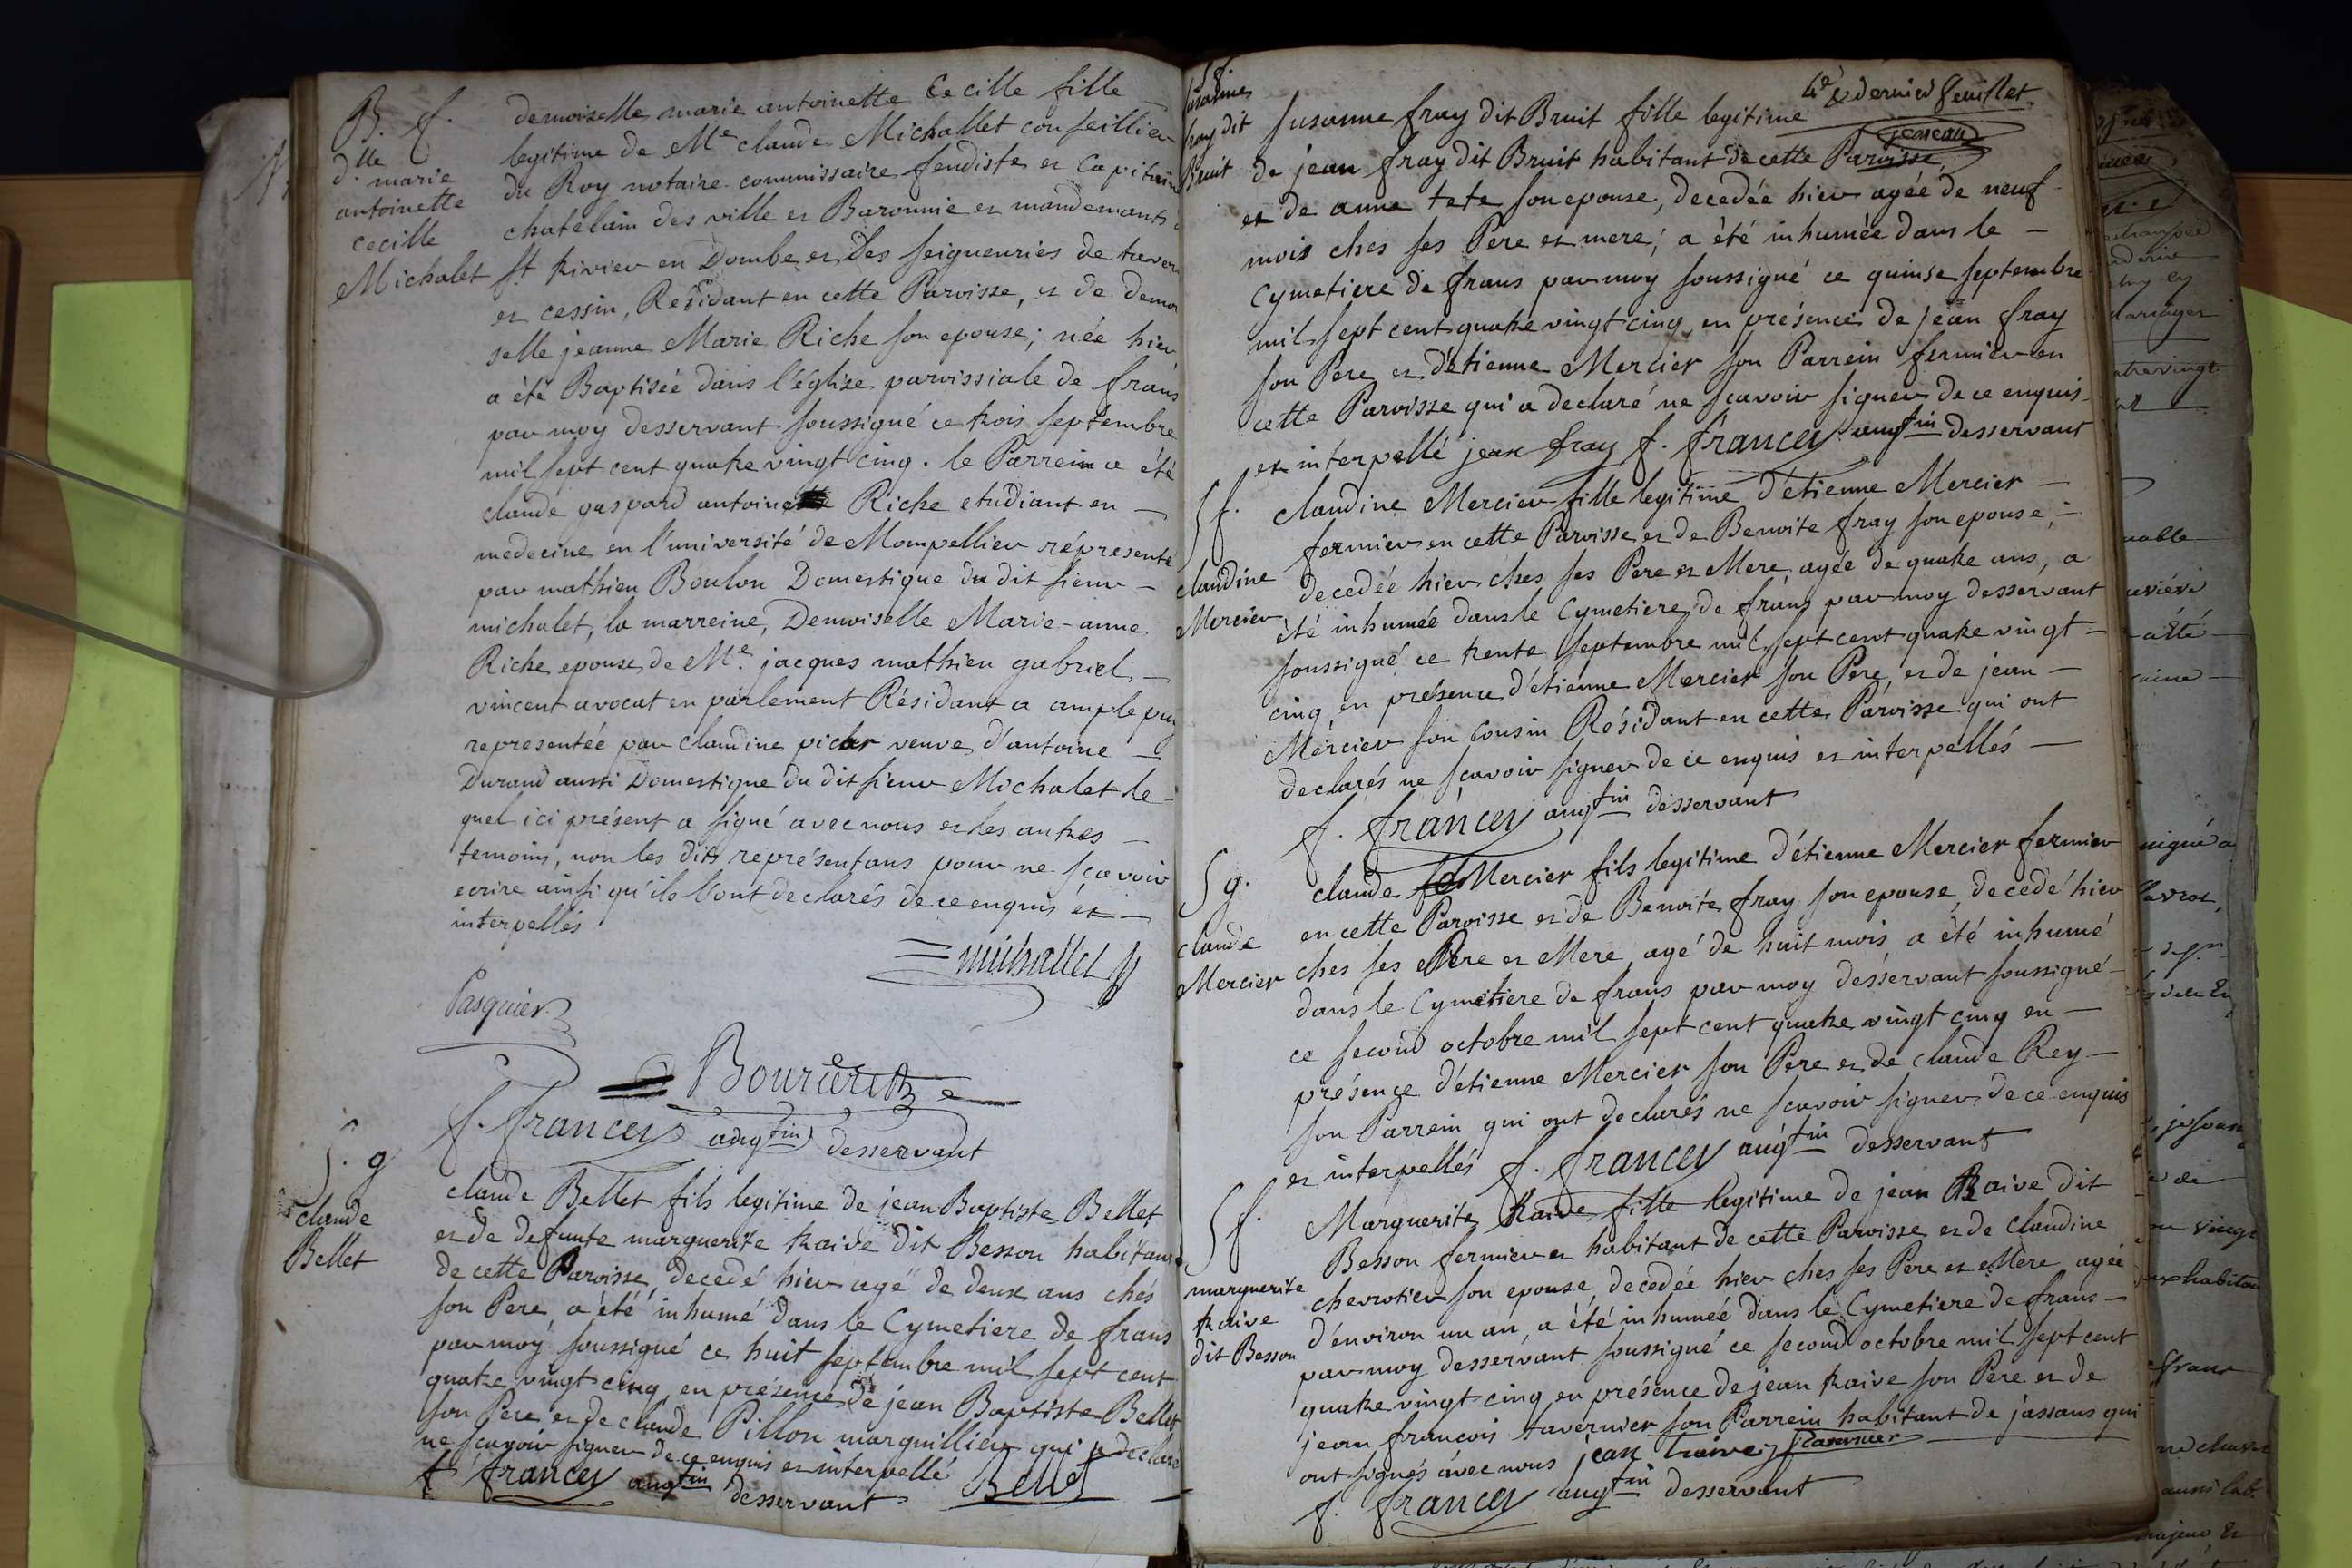 B. f.
dlle marie
antoinette
cecille
Michalet
demoiselle marie antoinette Cecille fille
legitime de Me claude Michallet conseillier
du Roy notaire commissaire feudiste et Capitaine
chatelain des ville et Baronnie et mandemants
st trivier en Dombe et Des seigneuries de
et cessin, Residant en cette Paroisse, et de demoi
selle jeanne Marie Riche son epouse; née hier
a été Baptisée dans l'église paroissiale de frans
par moy desservant soussigné ce trois septembre
mil sept cent quatre vingt cinq. le Parrein a été
claude gaspard antoine Riche etudiant en
medecine en l'université de Mompellier répresenté
par mathieu Boulon Domestique du dit sieur
michalet, la marreine, Demoiselle Marie-anne
Riche epouse de Me. jacques mathieu gabriel
vincent avocat en parlement Résidant a amplepuy
representée par claudine veuve d'antoine
Durand aussi Domestique du dit sieur Michalet le-
quel ici présent a signé avec nous et les autres
temoins, non les dits représentans pour ne sçavoir
ecrire ainsi qu'ils l'ont declarés de ce enquis et
interpellés
michallet
Pasquier
f. francey augtin desservant
S. g
claude
Bellet
claude Bellet fils legitime de jean Baptiste Bellet
et de defunte marguerite traive dit Besson habitans
de cette Paroisse, decedé hier agé de deux ans chés
son Pere, a été inhumé dans le Cymetiere de frans
par moy soussigné ce huit septembre mil sept cent
quatre vingt cinq, en présence de jean Baptiste Bellet
son Pere et de claude Pillon marguillier qui a declaré
ne sçavoir signer de ce enquis et interpellé
f. francey augtin desservant Bellet
4e & dernier feuillet
S f.
susanne
fray dit
Bruit
susanne fray dit Bruit fille legitime
de jean fray dit Bruit habitant de cette Paroisse
et de anne tete son epouse, decedée hier agée de neuf
mois ches ses Pere et mere; a été inhumée dans le
Cymetiere de frans par moy soussigné ce quinse septembre
mil sept cent quatre vingt cinq en présence de jean fray
son Pere et d'étienne Mercier son Parrein fermier en
cette Paroisse qui a declaré ne sçavoir signer de ce enquis
et interpellé jean fray f. francey augtin desservant
S f.
claudine
Mercier
claudine Mercier fille legitime d'étienne Mercier
fermier en cette Paroisse et de Benoite fray son epouse,
decedée hier ches ses Pere et Mere agée de quatre ans, a
été inhumée dans le Cymetiere de frans par moy desservant
soussigné ce trente septembre mil sept cent quatre vingt
cinq en présence d'étienne Mercier son Pere, et de jean
Mercier son Cousin Résidant en cette Paroisse qui ont
declarés ne sçavoir signer de ce enquis et interpellés
f. francey augtin desservant
S g.
claude
Mercier
claude Mercier fils legitime d'étienne Mercier fermier
en cette Paroisse et de Benoite fray son epouse, decedé hier
ches ses Pere et Mere, agé de huit mois a été inhumé
dans le Cymetiere de frans par moy desservant soussigné
ce second octobre mil sept cent quatre vingt cinq en
présence d'étienne Mercier son Pere et de claude Rey
son Parrein qui ont declarés ne sçavoir signer de ce enquis
et interpellés f. francey augtin desservant
S f.
marguerite
traive
dit Besson
Marguerite traive fille legitime de jean traive dit
Besson fermier et habitant de cette Paroisse et de claudine
chevrotier son epouse, decedée hier ches ses Pere et Mere agée
d'environ un an, a été inhumée dans le Cymetiere de frans
par moy desservant soussigné ce second octobre mil sept cent
quatre vingt cinq en présence de jean traive son Pere et de
jean francois tavernier son Parrein habitant de jassans qui
ont signés avec nous jean traive j tavernier
f. francey augtin desservant